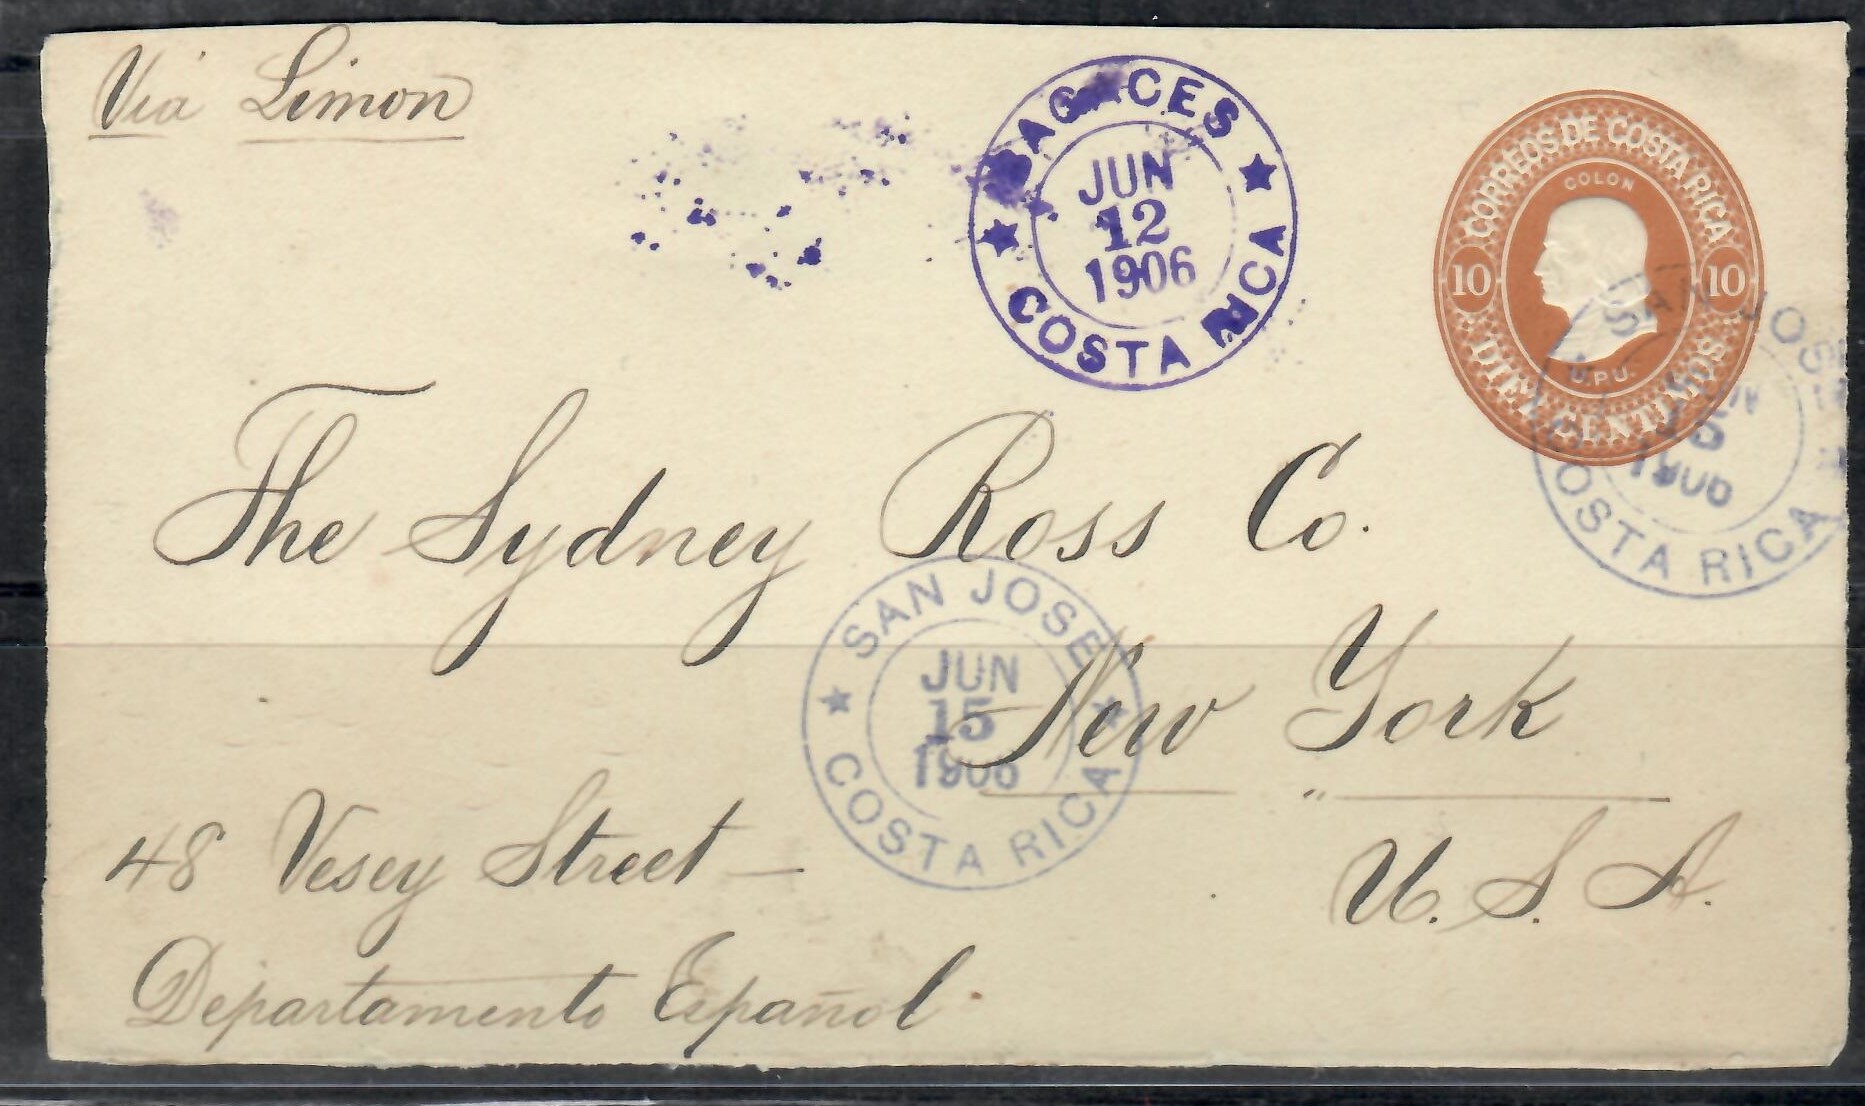 Via Limon
BAGACES
JUN
12
1906
COSTA RICA
CORREOS DE COSTA RICA
COLON
10 10
U.P.U.
DIEZ CENTIMOS
SAN JOSE
JUN
15
1906
COSTA RICA
The Sydney Ross Co.
SAN JOSE
JUN
15
1906
COSTA RICA
New York
48 Vesey Street —
U. S. A.
Departamento Español.